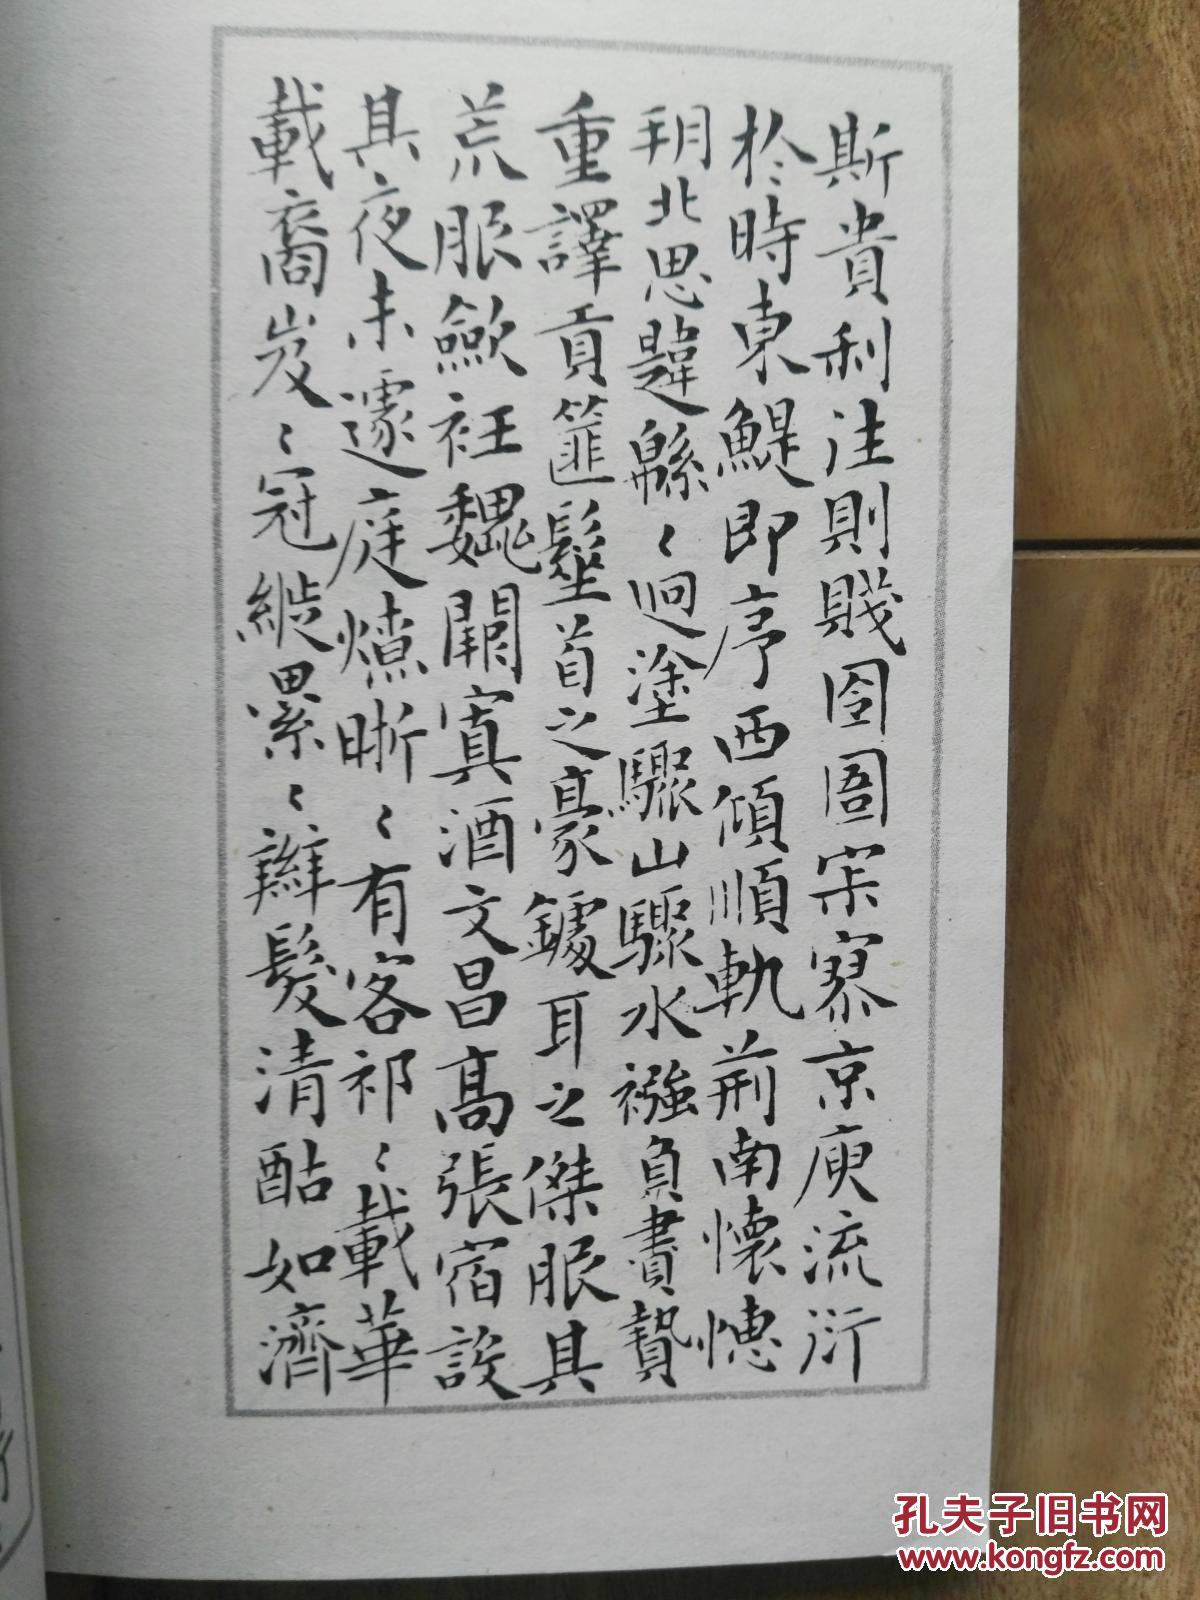 斯貴利往則賤囹圄寂寥京庾流衍
於時東鯷即序西傾順軌荊南懷憓
朔北思韙緜々迥塗驟山驟水襁負賮贄
重譯貢篚髽首之豪鐻耳之傑服其
荒服斂衽魏闕寘酒文昌高張宿設
其夜未遽庭燎晣々有客祁々載華
載裔岌々冠縰累々辮髮清酤如濟
孔夫子旧书网
www.kongfz.com